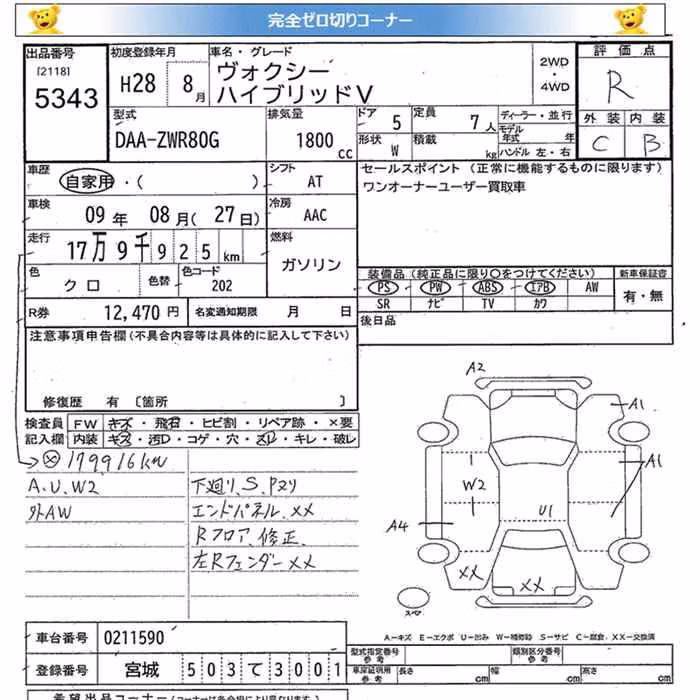 完全ゼロ切りコーナー
出品番号 初度登録年月 車名・グレード 評価点
[2118] 2WD
5343 H28 8月 ヴォクシー ・ R
ハイブリッドV 4WD
型式 排気量 ドア 5 定員 7人 ディーラー・並行 外装 内装
DAA-ZWR80G 1800cc 形状 W 積載 kg モデル年式 年 C B
ハンドル 左・右
車歴 自家用・( ) シフト AT セールスポイント (正常に機能するものに限ります)
車検 09年 08月(27日) 冷房 AAC ワンオーナーユーザー買取車
走行 17万9千925km 燃料 ガソリン
色 クロ 色替 色コード 202 装備品(純正品に限り〇をつけてください) 新車保証書
PS PW ABS エアB AW 有・無
R券 12,470円 名変通知期限 月 日 SR ナビ TV カワ
注意事項申告欄(不具合内容等は具体的に記入して下さい) 後日品
修復歴 有 [箇所 ]
検査員 FW キズ・飛石・ヒビ割・リペア跡・×要
記入欄 内装 キズ・汚D・コゲ・穴・スレ・キレ・破レ
179916km
A.U.W2 下廻り、S、Pヌリ
外AW エンドパネル、XX
Rフロア、修正
左Rフェンダー XX
A2
A1
A1
W2
U1
A4
XX
XX
スペア
A-キズ E-エクボ U-凹み W-補修跡 S-サビ C-腐食 XX-交換済
車台番号 0211590 型式指定番号 参考 類別区分番号 参考
登録番号 宮城 503て3001 車庫証明用 参考 長さ cm 幅 cm 高さ cm
希望出品コーナー